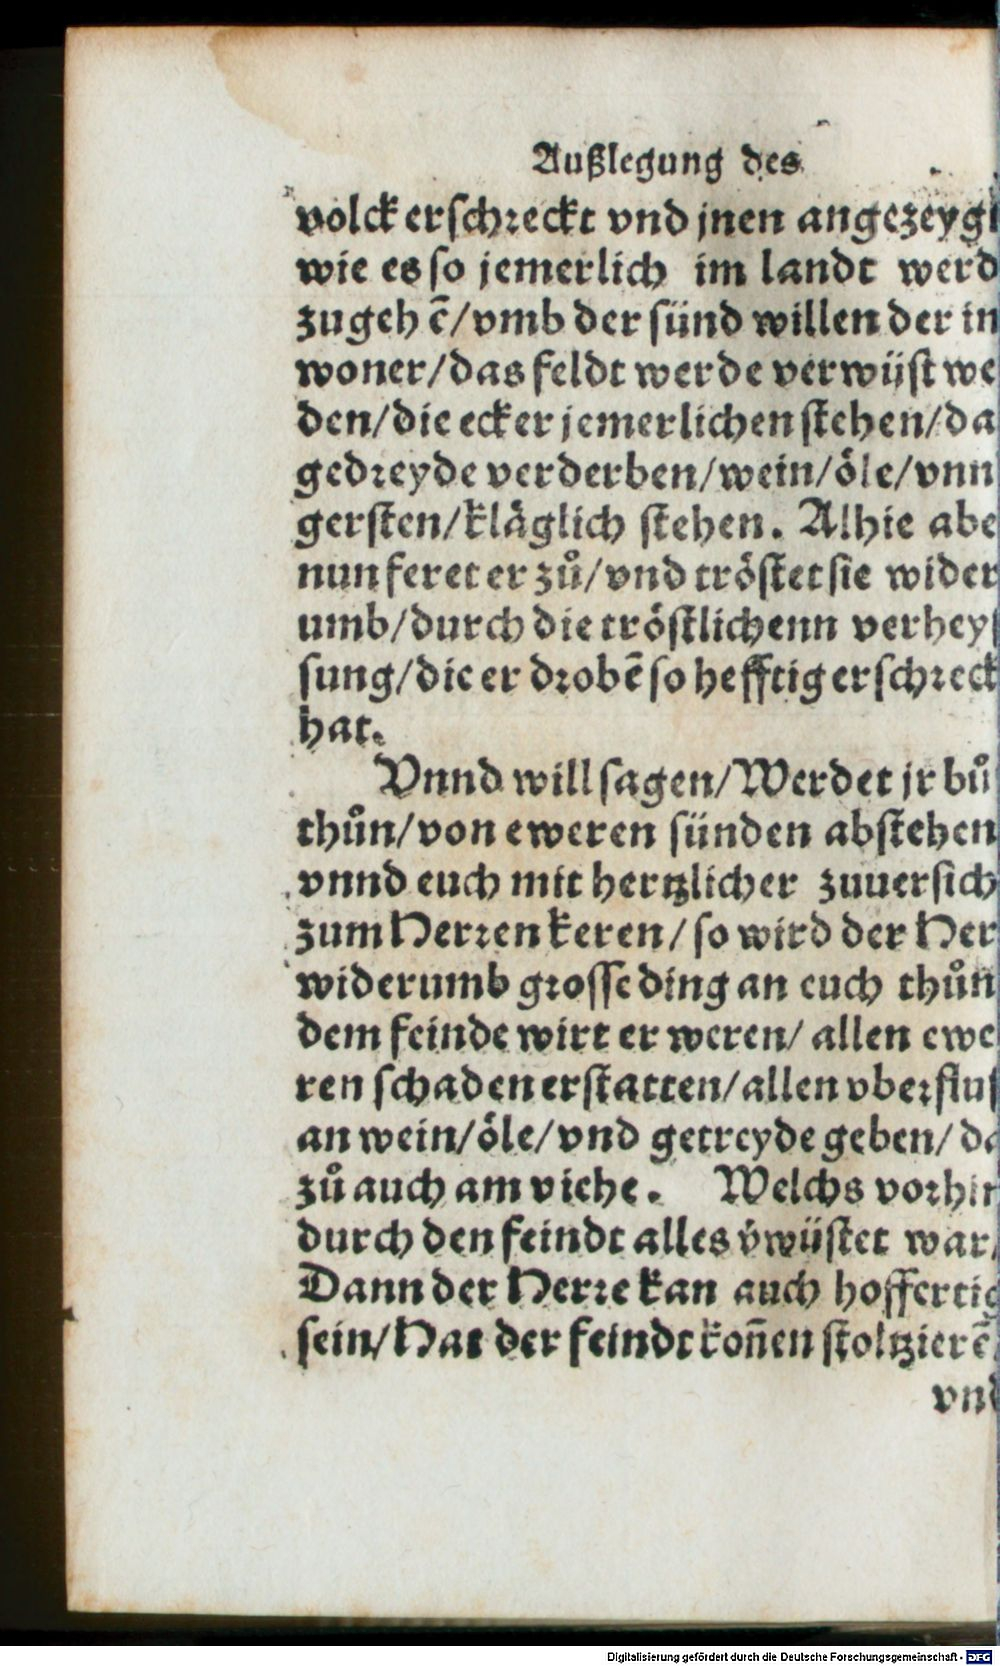 Außlegung des
volck erschreckt vnd jnen angezeygt
wie es so jemerlich im landt werd
zugehē/vmb der sünd willen der in
woner/das feldt werde verwüst we
den/die ecker jemerlichen stehen/da
gedreyde verderben/wein/öle/vnn
gersten/kläglich stehen. Alhie abe
nun feret er zuͦ/vnd tröstet sie wider
umb/durch die tröstlichenn verhey
sung/die er drobē so hefftig erschreck
hat.
Vnnd will sagen/Werdet jr buͦ
thuͦn/von eweren sünden abstehen
vnnd euch mit hertzlicher zuuersich
zum Herren keren/so wird der Her
widerumb grosse ding an euch thuͦn
dem feinde wirt er weren/allen ewe
ren schaden erstatten/allen vberflus
an wein/öle/vnd getreyde geben/da
zuͦ auch am viehe. Welchs vorhin
durch den feindt alles v̈wüstet war/
Dann der Herre kan auch hoffertig
sein/Hat der feindt koñen stoltzierē
vnd
Digitalisierung gefördert durch die Deutsche Forschungsgemeinschaft - DFG